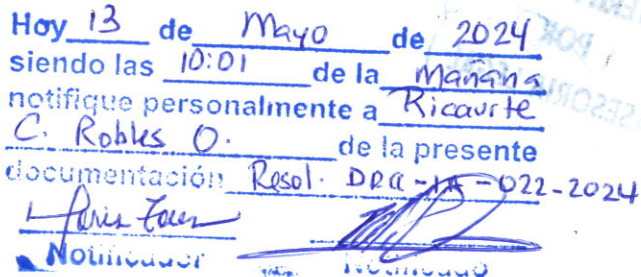 Hoy 13 de Mayo de 2024
siendo las 10:01 de la mañana
notifique personalmente a Ricaurte
C. Robles O. de la presente
documentación Resol. DRA-IA-022-2024
Notificador Notificado